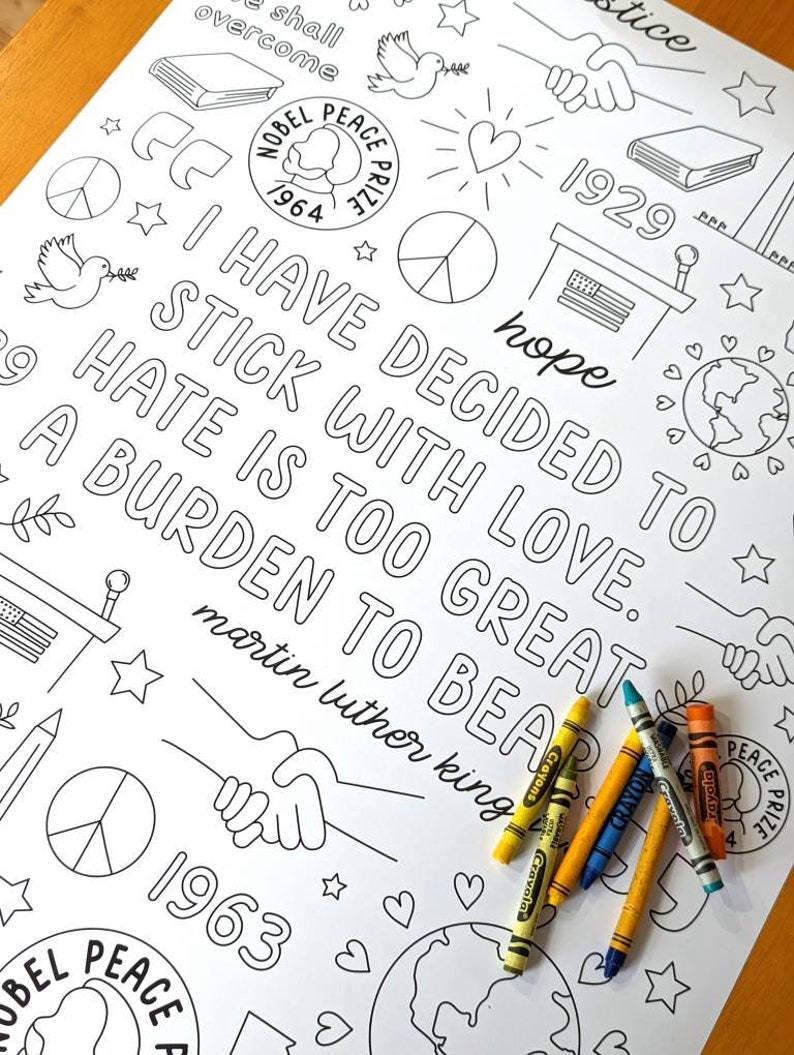 we shall
overcome
justice
NOBEL PEACE PRIZE
1964
1929
I HAVE DECIDED TO
STICK WITH LOVE.
HATE IS TOO GREAT
A BURDEN TO BEAR
hope
martin luther king
1963
NOBEL PEACE PRIZE
PRIZE
Crayons
Crayola
WASHABLE
CRAYON
Crayola
WASHABLE
Crayola